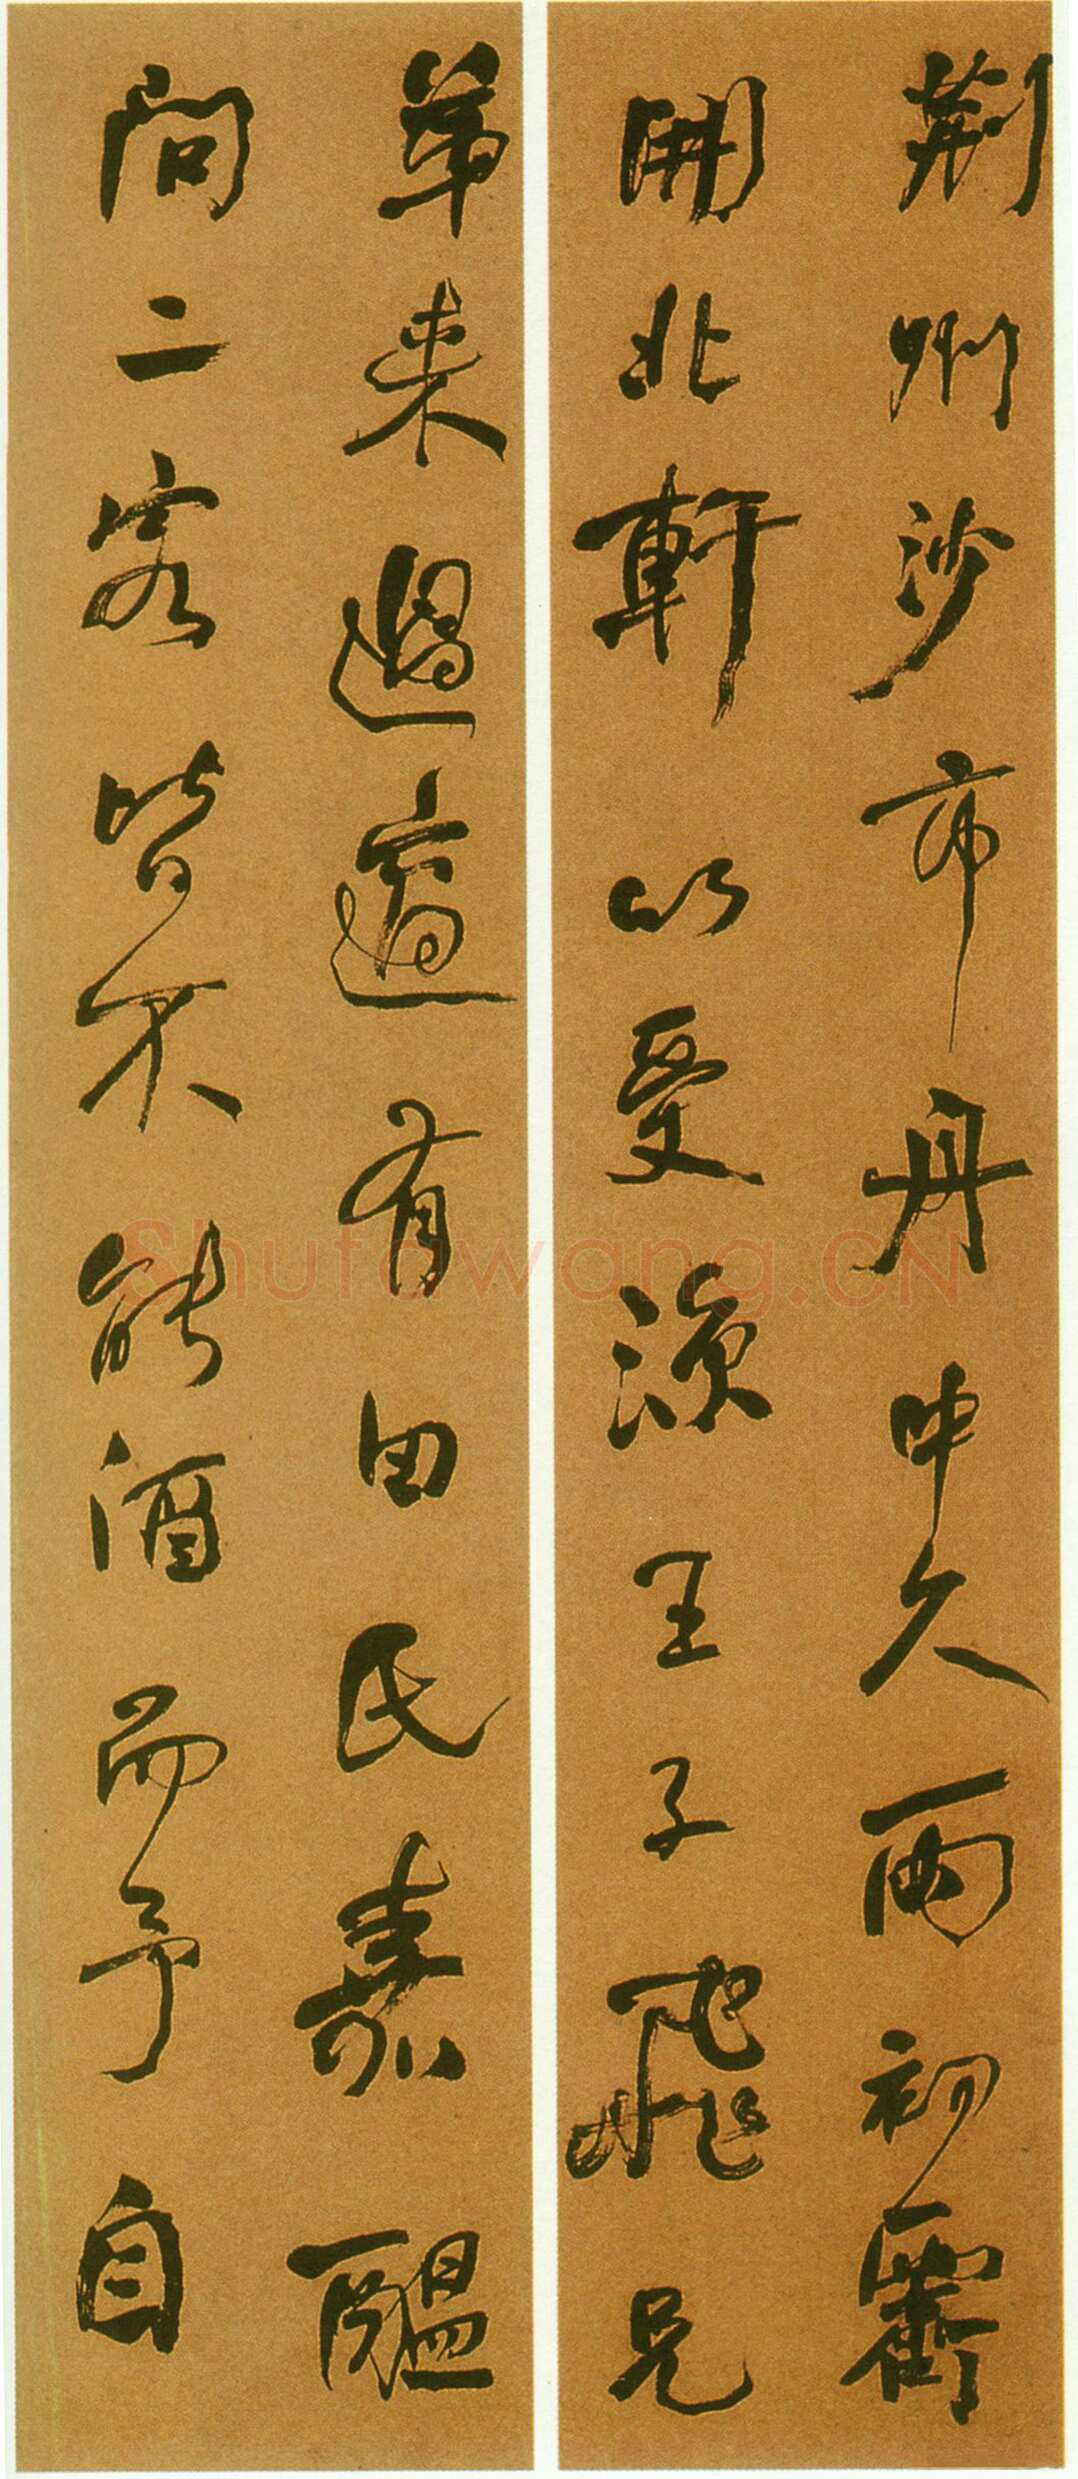 荆州沙市舟中久雨初霽
開北軒以受涼王子飛兄
弟来過適有田氏嘉醖
問二客皆不能酒而予自
Shufawang.CN